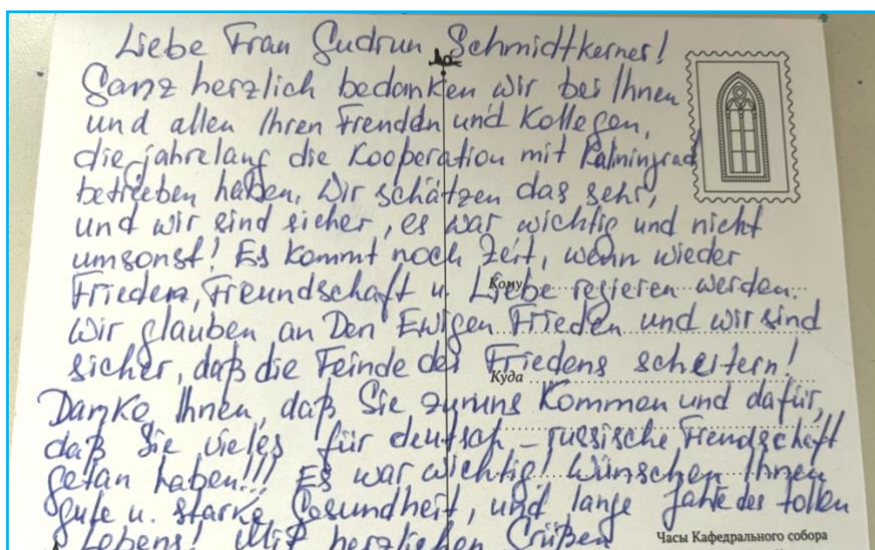 Liebe Frau Gudrun Schmidtkerner!
Ganz herzlich bedanken wir bei Ihnen
und allen Ihren Frenddn und Kollegen,
die jahrelang die Kooperation mit Kaliningrad
betrieben haben. Wir schätzen das sehr,
und wir sind sicher, es war wichtig und nicht
umsonst! Es kommt noch Zeit, wenn wieder
Frieden, Freundschaft u. Liebe regieren werden.
Кому
Wir glauben an Den Ewigen Frieden und wir sind
sicher, daß die Feinde des Friedens scheitern!
Куда
Danke Ihnen, daß Sie zu uns kommen und dafür,
daß Sie vieles für deutsch-russische Frendschaft
getan haben!!! Es war wichtig! Wünschen Ihnen
gute u. starke Gesundheit, und lange Jahre des tollen
Lebens! Mit herzlichen Grüßen
Часы Кафедрального собора